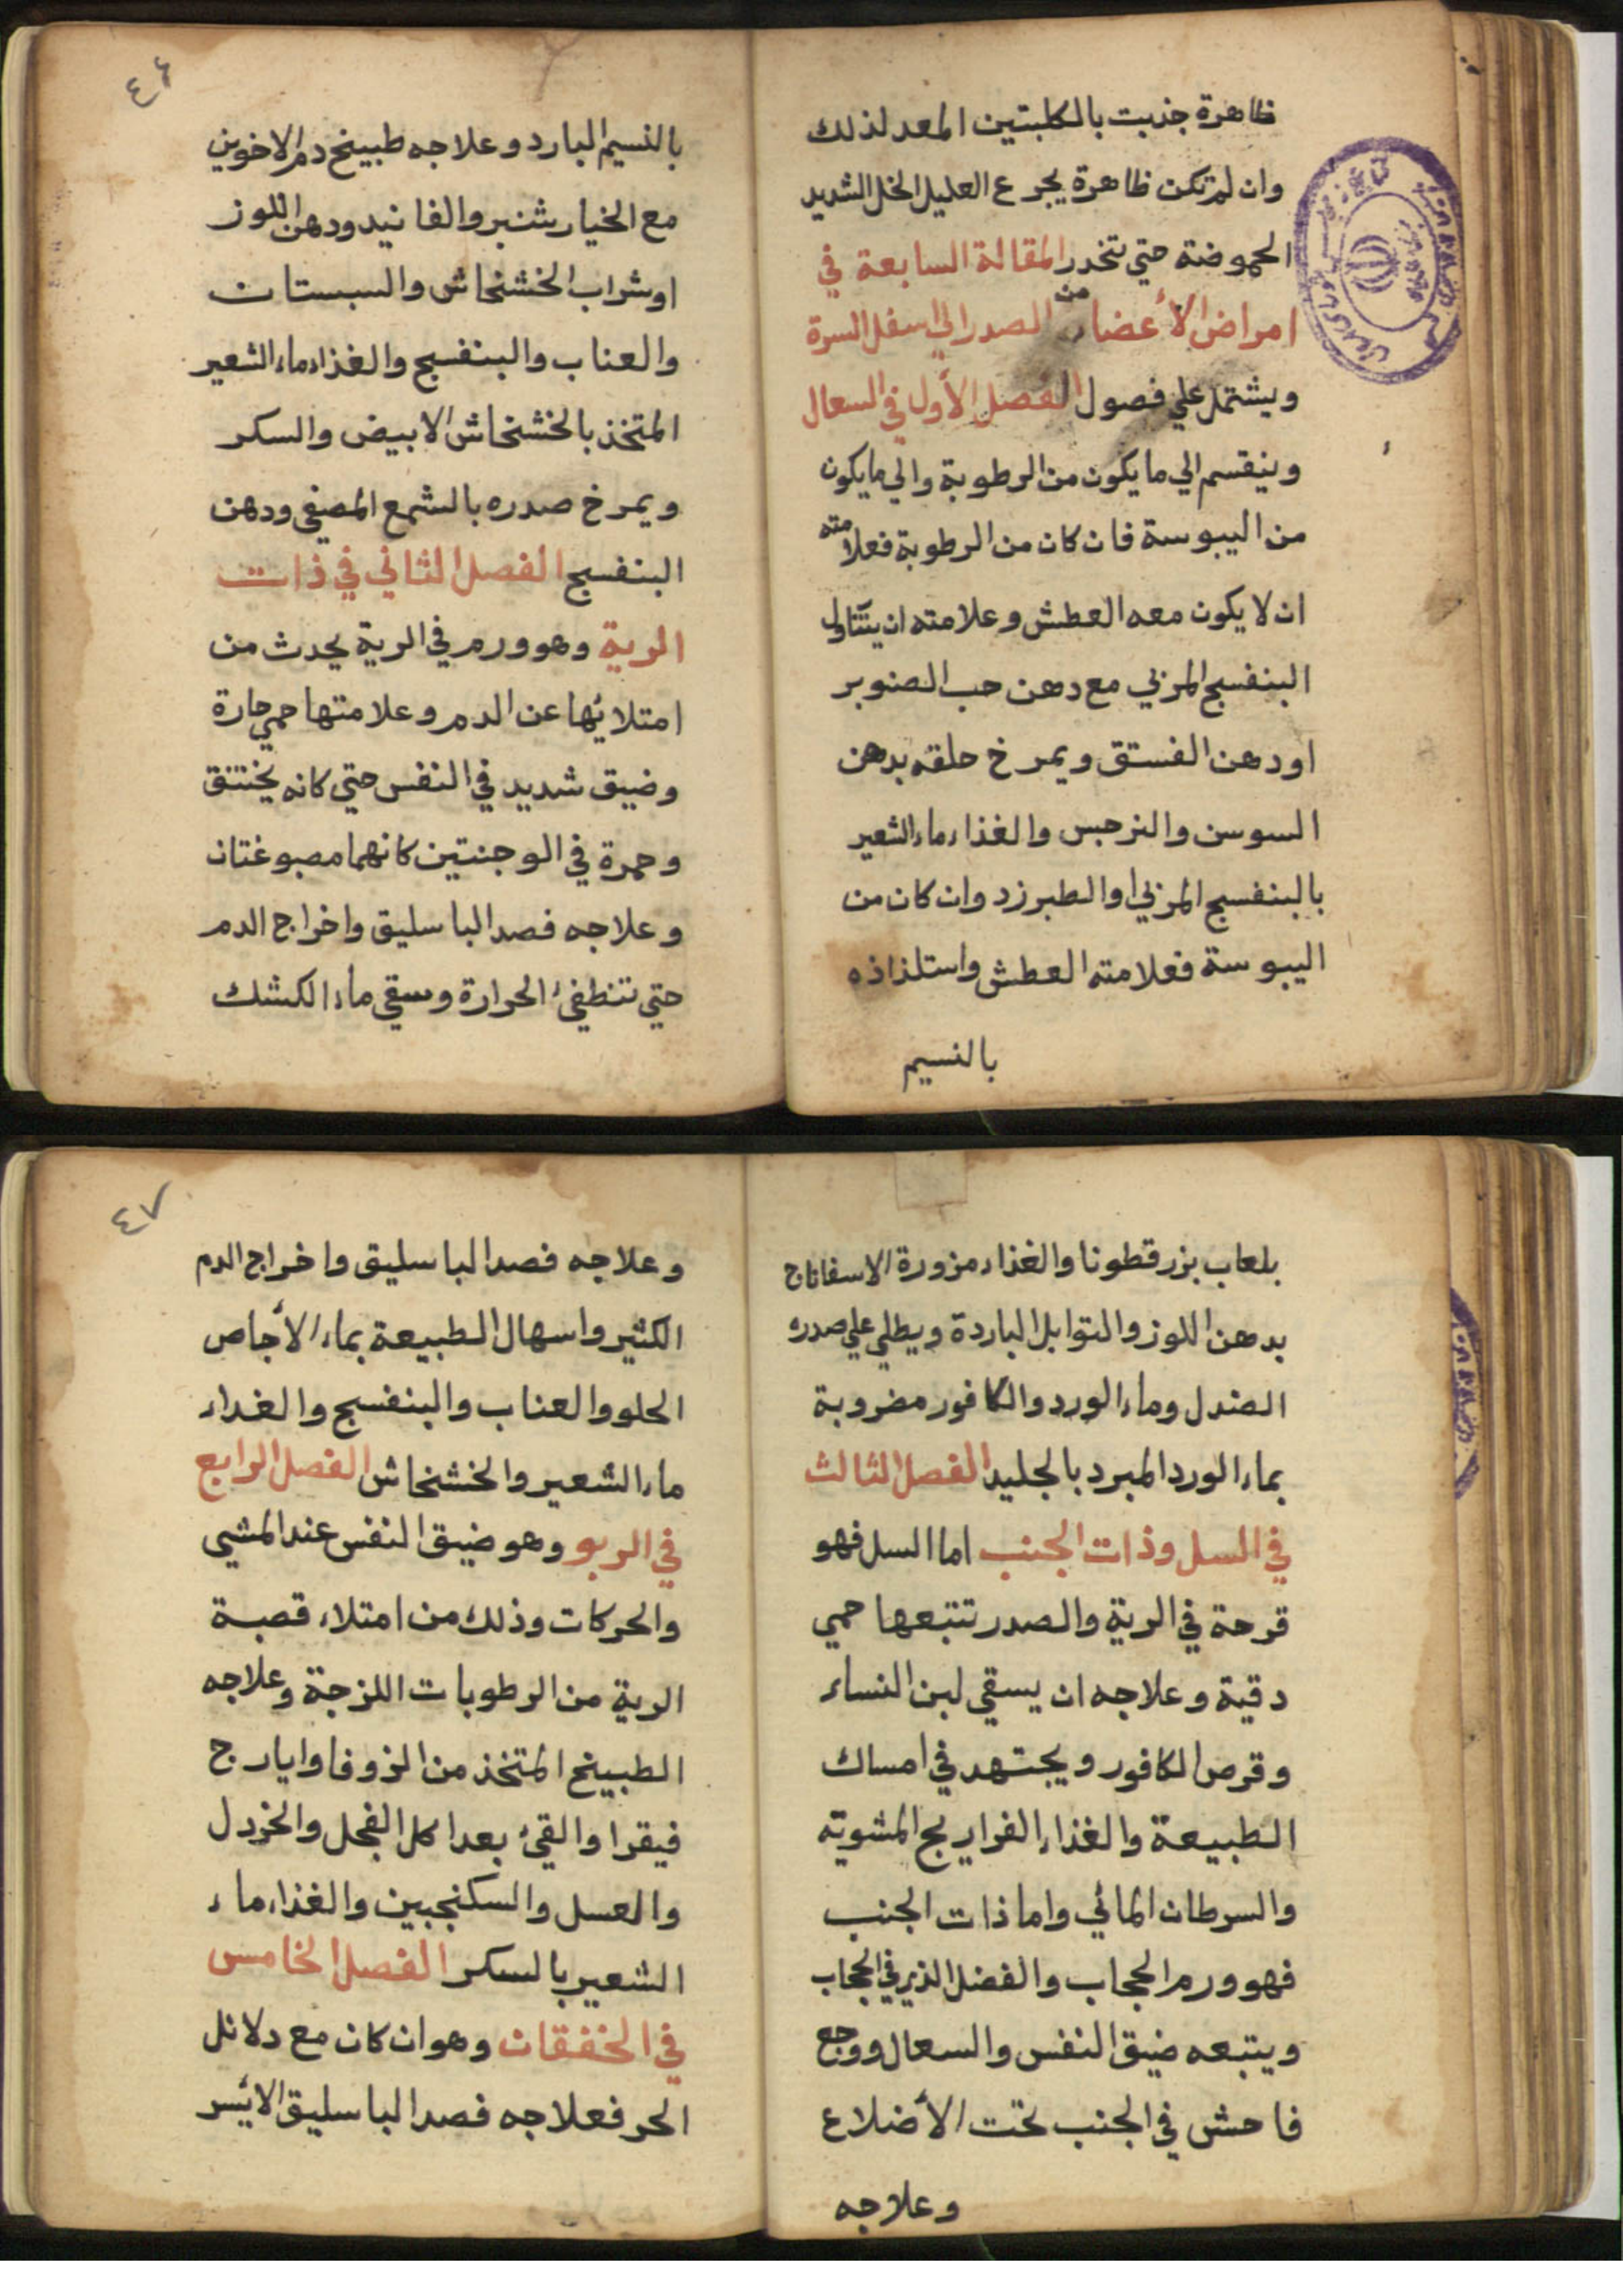 ظاهرة جذبت بالكلبتين المعد لذلك
وان لم تكن ظاهرة يجرع العليل الخل الشديد
الحموضة حتي تخدر المقالة السابعة في
امراض الأعضاء من الصدر الي اسفل السرة
ويشتمل علي فصول الفصل الأول في السعال
وينقسم الي ما يكون من الرطوبة والي ما يكون
من اليبوسة فان كان من الرطوبة فعلامته
ان لا يكون معه العطش وعلامته ان يتناول
البنفسج المربي مع دهن حب الصنوبر
او دهن الفستق ويمرخ حلقه بدهن
السوسن والنرجس والغذاء ماء الشعير
بالبنفسج المربي او الطبرزد وان كان من
اليبوسة فعلامته العطش واستلذاذه
بالنسيم
٤٦
بالنسيم البارد وعلاجه طبيخ دم الاخوين
مع الخيار شنبر والفانيد ودهن اللوز
او شراب الخشخاش والسبستان
والعناب والبنفسج والغذاء ماء الشعير
المتخذ بالخشخاش الابيض والسكر
ويمرخ صدره بالشمع المصفي ودهن
البنفسج الفصل الثاني في ذات
الرية وهو ورم في الرية يحدث من
امتلائها عن الدم وعلامتها حمي حارة
وضيق شديد في النفس حتي كانه يختنق
وحمرة في الوجنتين كانهما مصبوغتان
وعلاجه فصد الباسليق واخراج الدم
حتي تنطفئ الحرارة وسقي ماء الكشك
بلعاب بزر قطونا والغذاء مزورة الاسفاناج
بدهن اللوز والتوابل الباردة ويطلي علي صدره
الصندل وماء الورد والكافور مضروبة
بماء الورد المبرد بالجليد الفصل الثالث
في السل وذات الجنب اما السل فهو
قرحة في الرية والصدر تتبعها حمي
دقية وعلاجه ان يسقي لبن النساء
وقرص الكافور ويجتهد في امساك
الطبيعة والغذاء الفراريج المشوية
والسرطان المائي واما ذات الجنب
فهو ورم الحجاب والفضل الذي في الحجاب
ويتبعه ضيق النفس والسعال ووجع
فاحش في الجنب تحت الأضلاع
وعلاجه
٤٧
وعلاجه فصد الباسليق واخراج الدم
الكثير واسهال الطبيعة بماء الأجاص
الحلو والعناب والبنفسج والغداء
ماء الشعير والخشخاش الفصل الرابع
في الربو وهو ضيق النفس عند المشي
والحركات وذلك من امتلاء قصبة
الرية من الرطوبات اللزجة وعلاجه
الطبيخ المتخذ من الزوفا وايارج
فيقرا والقئ بعد اكل الفجل والخردل
والعسل والسكنجبين والغذاء ماء
الشعير بالسكر الفصل الخامس
في الخفقان وهو ان كان مع دلائل
الحر فعلاجه فصد الباسليق الايسر